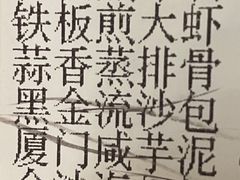 铁板煎大虾
蒜香蒸排骨
黑金流沙包
厦门咸芋泥